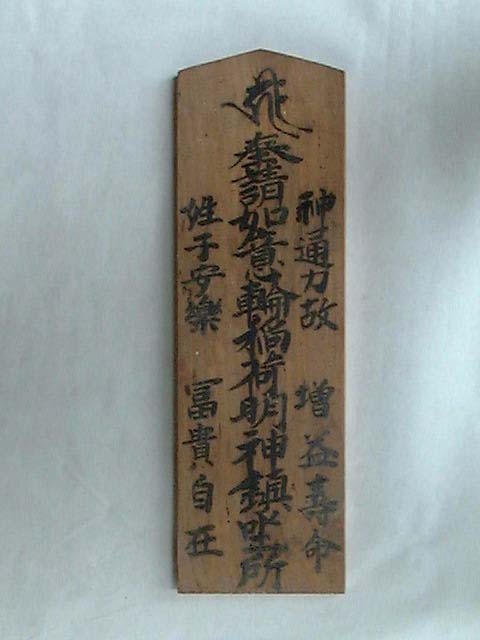 神通力故　増益寿命
奉請如意輪稲荷明神鎮坐所
姓子安樂　冨貴自在